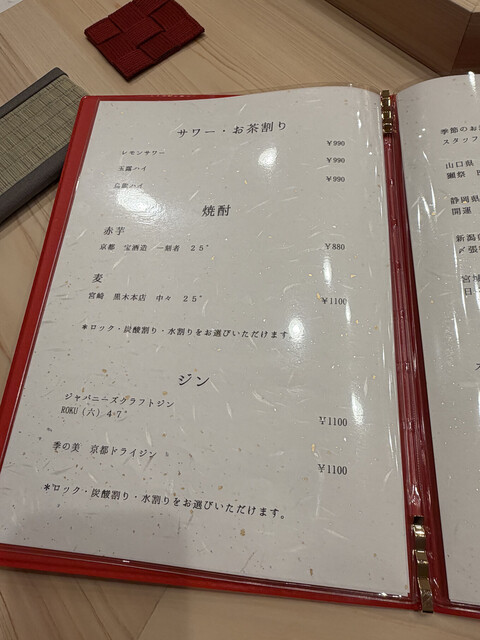 サワー・お茶割り
レモンサワー ¥990
玉露ハイ ¥990
烏龍ハイ ¥990
焼酎
赤芋
京都 宝酒造 一刻者 25° ¥880
麦
宮崎 黒木本店 中々 25° ¥1100
*ロック・炭酸割り・水割りをお選びいただけます。
ジン
ジャパニーズクラフトジン
ROKU(六) 47° ¥1100
季の美 京都ドライジン ¥1100
*ロック・炭酸割り・水割りをお選びいただけます。
季節のお
スタッフ
山口県
獺祭
静岡県
開運
新潟
〆張
宮城
日